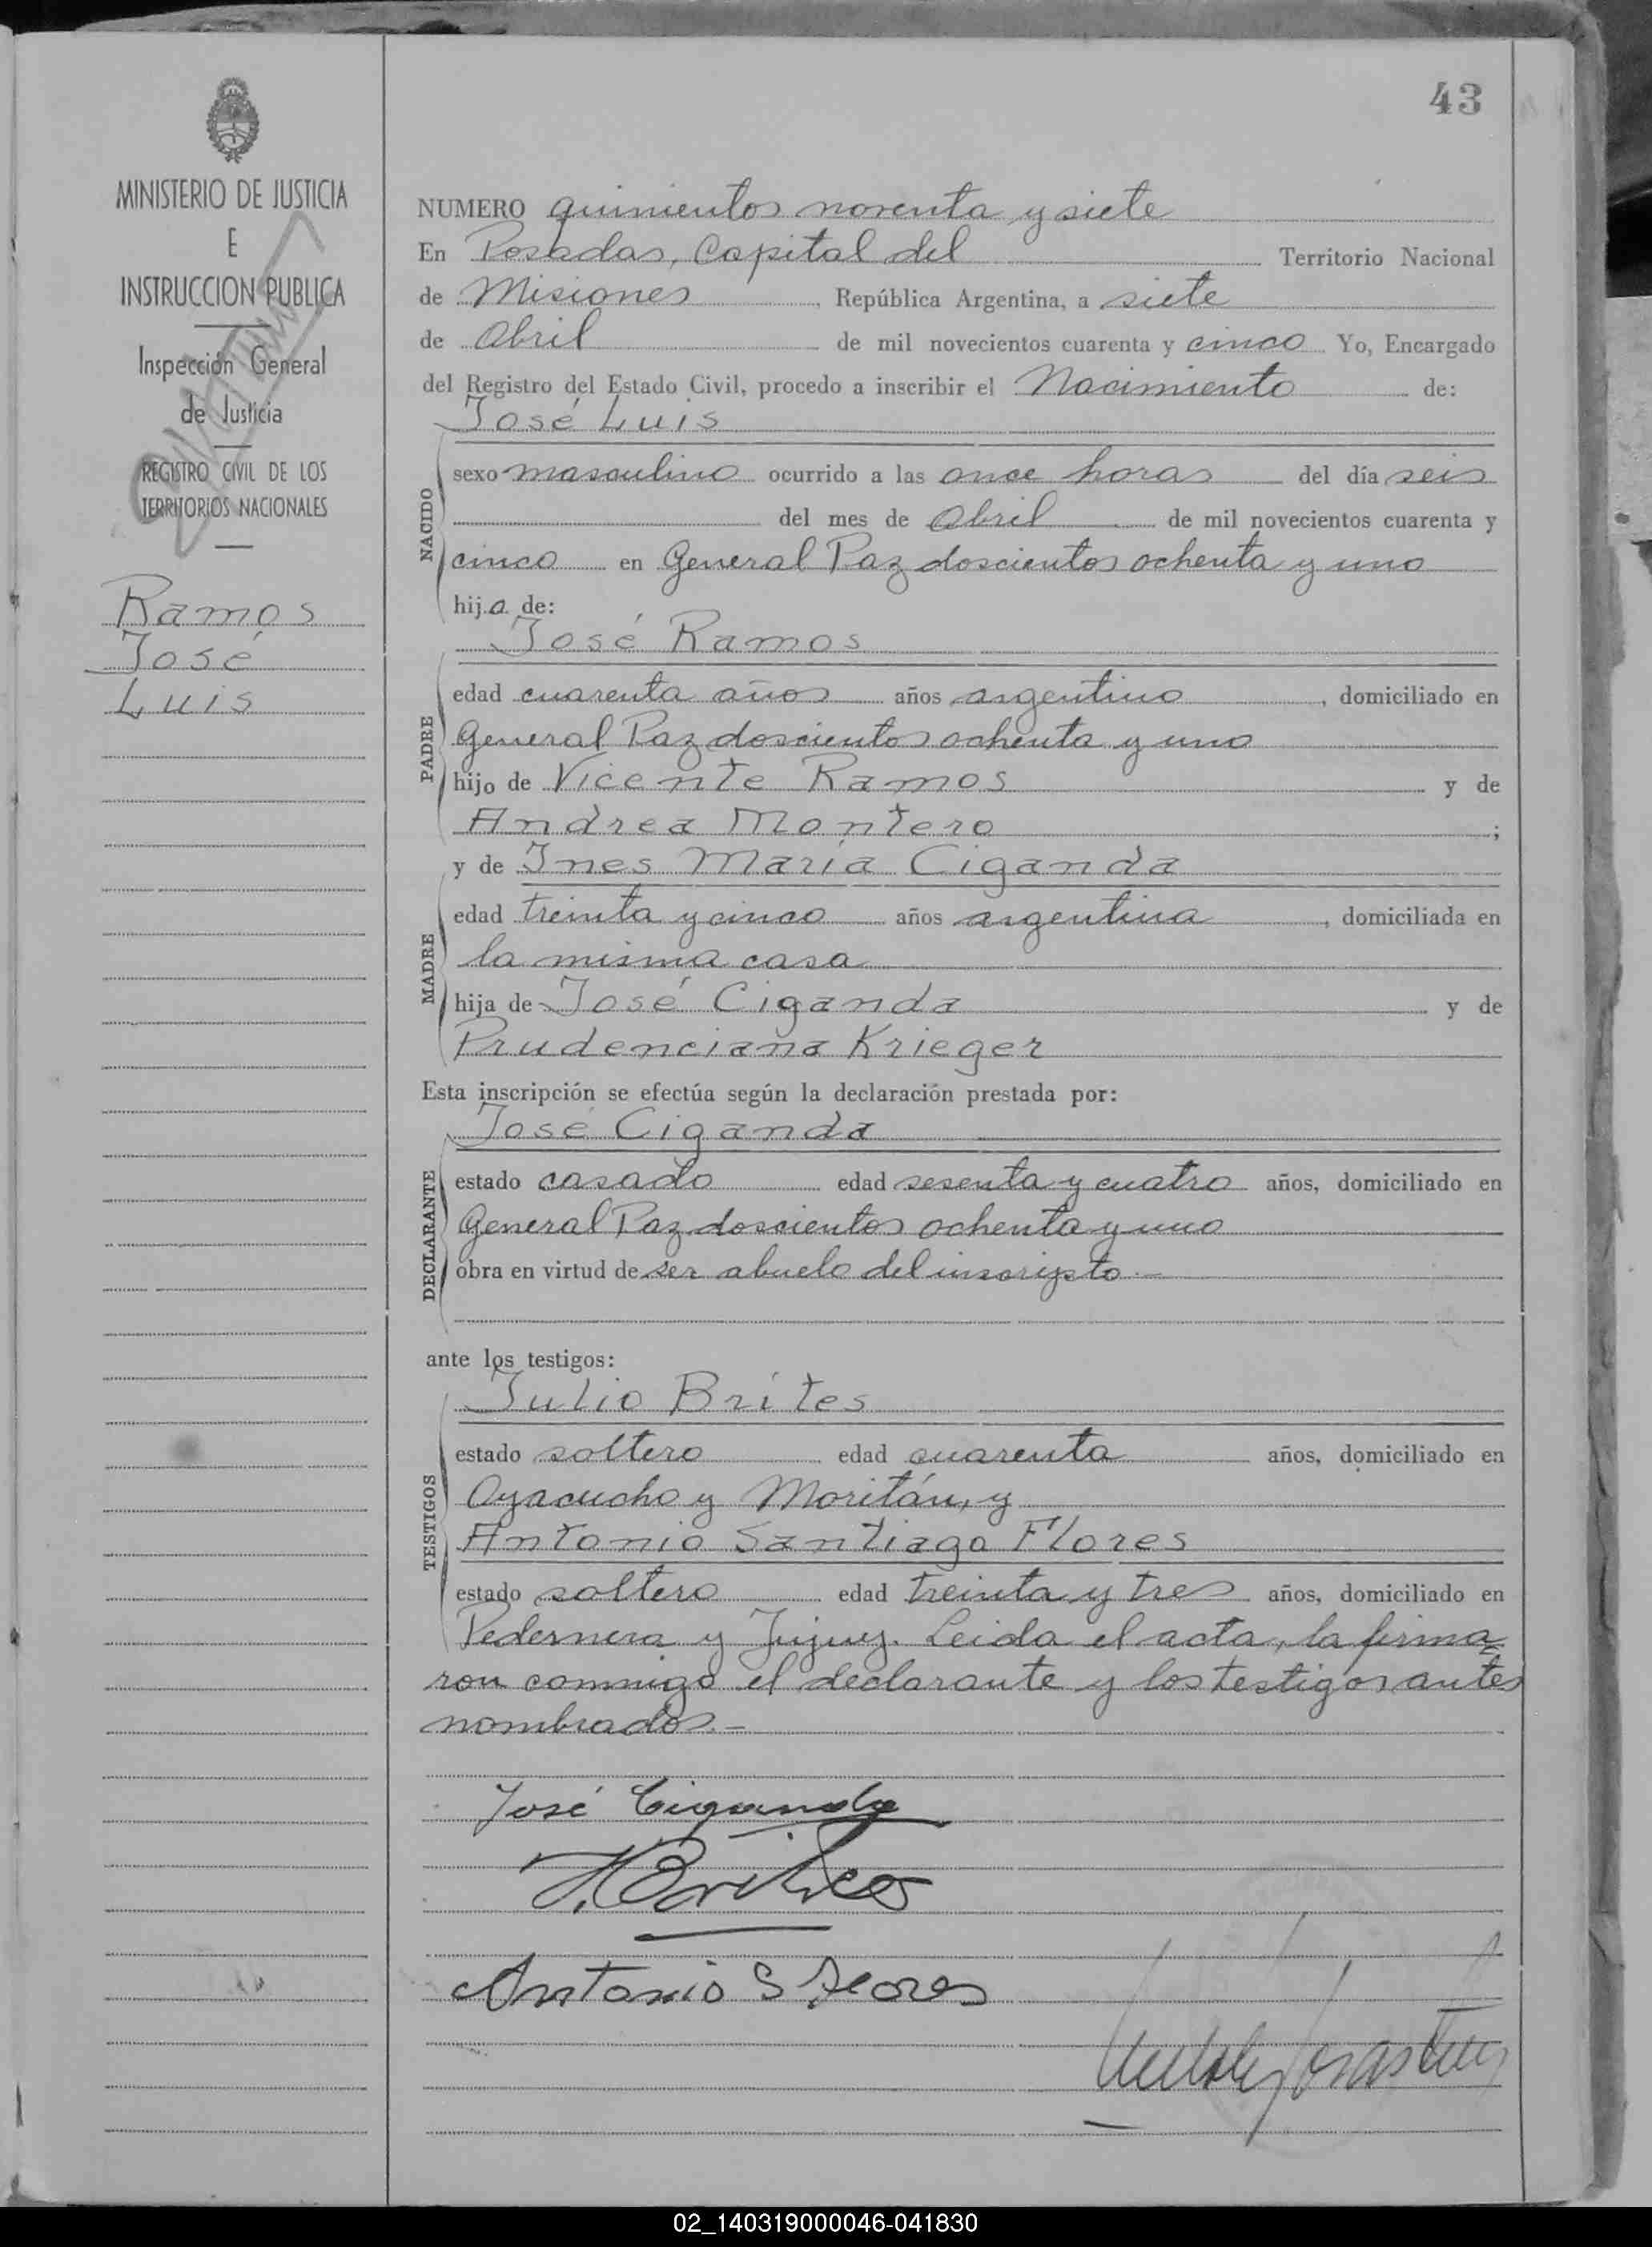 43
MINISTERIO DE JUSTICIA
E
INSTRUCCION PUBLICA
Inspección General
de Justicia
REGISTRO CIVIL DE LOS
TERRITORIOS NACIONALES
Ramos
José
Luis
NUMERO quinientos noventa y siete
En Posadas, Capital del Territorio Nacional
de Misiones, República Argentina, a siete
de Abril de mil novecientos cuarenta y cinco Yo, Encargado
del Registro del Estado Civil, procedo a inscribir el Nacimiento de:
José Luis
NACIDO
sexo masculino ocurrido a las once horas del día seis
del mes de Abril de mil novecientos cuarenta y
cinco en General Paz doscientos ochenta y uno
hijo de:
José Ramos
PADRE
edad cuarenta años años argentino, domiciliado en
General Paz doscientos ochenta y uno
hijo de Vicente Ramos y de
Andrea Montero;
y de Ines María Ciganda
MADRE
edad treinta y cinco años argentina, domiciliada en
la misma casa
hija de José Ciganda y de
Prudenciana Krieger
Esta inscripción se efectúa según la declaración prestada por:
José Ciganda
DECLARANTE
estado casado edad sesenta y cuatro años, domiciliado en
General Paz doscientos ochenta y uno
obra en virtud de ser abuelo del inscripto.-
ante los testigos:
Julio Brites
TESTIGOS
estado soltero edad cuarenta años, domiciliado en
Ayacucho y Moritán, y
Antonio Santiago Flores
estado soltero edad treinta y tres años, domiciliado en
Pedernera y Jujuy. Leida el acta, la firma=
ron conmigo el declarante y los testigos antes
nombrados.-
José Ciganda
J. Brites
Antonio S Flores
02_140319000046-041830